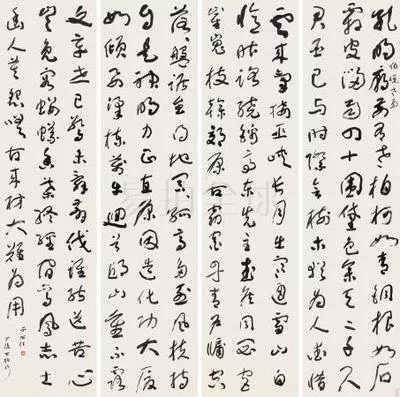 孔明廟前有老柏柯如青銅根如石
霜皮溜雨四十圍黛色參天二千尺
君臣已與時際會樹木猶為人愛惜
雲來氣接巫峽長月出寒通雪山白
憶昨路繞錦亭東先主武侯同閟宮
崔嵬枝幹郊原古窈窕丹青戶牖空
落落盤踞雖得地冥冥孤高多烈風扶持
自是神明力正直原因造化功大廈
如傾要梁棟萬牛迴首丘山重不露
文章世已驚未辭翦伐誰能送苦心
豈免容螻蟻香葉終經宿鸞鳳志士
幽人莫怨嗟古來材大難為用
于右任
易拍全球